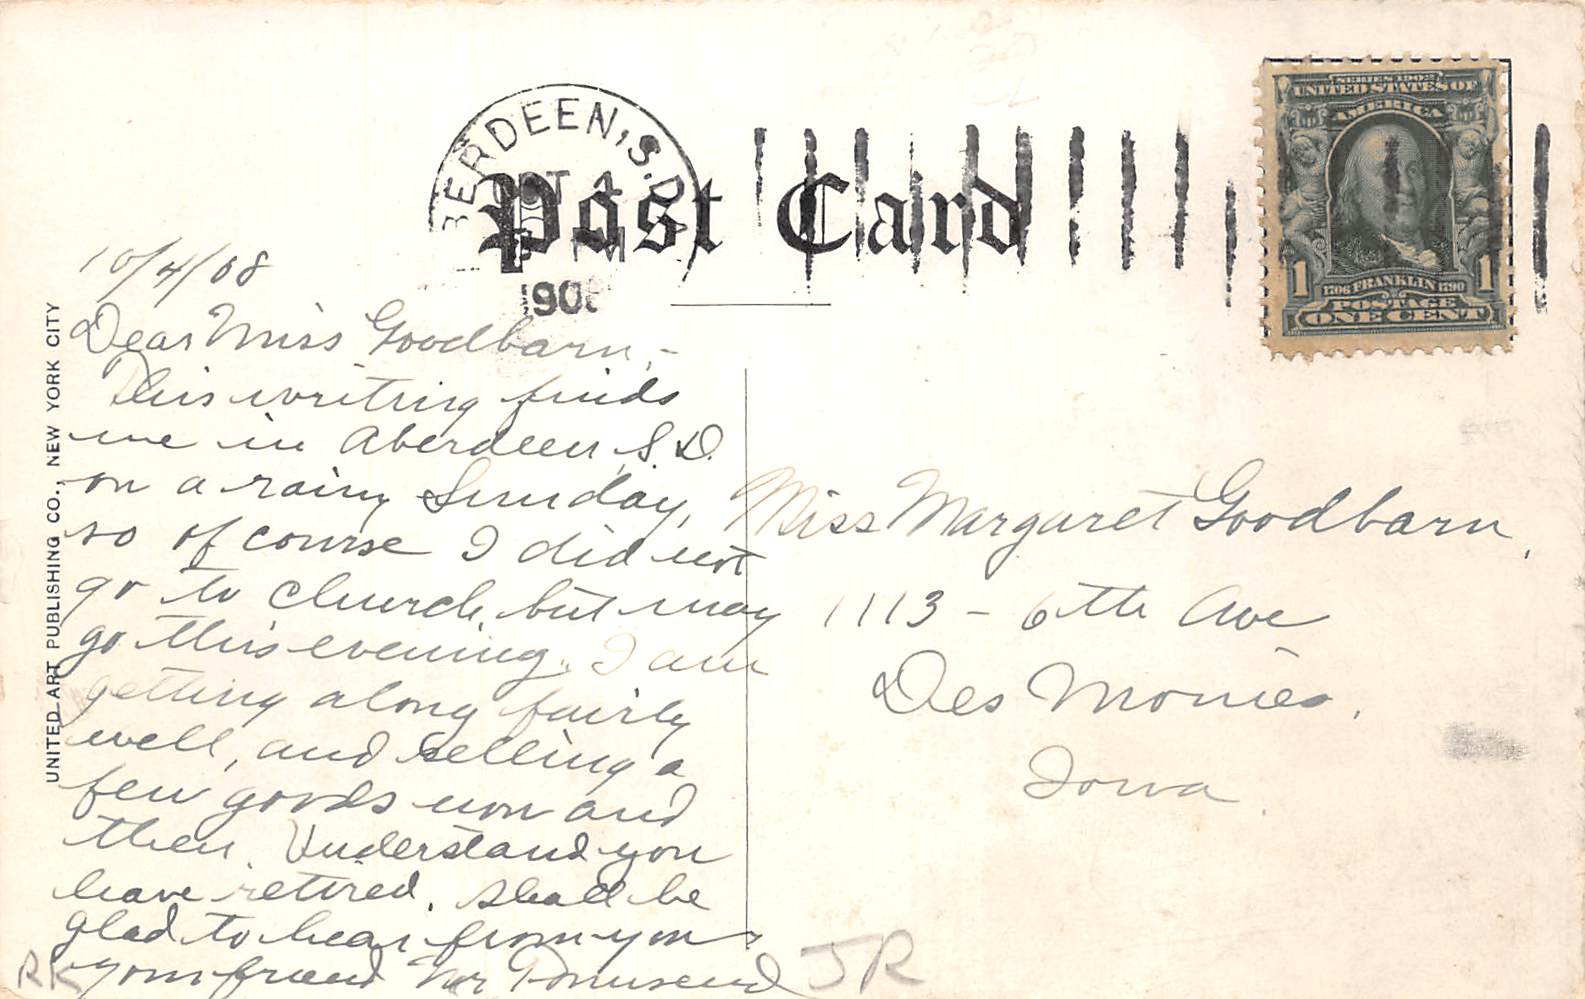 ABERDEEN, S.D.
OCT 4
PM
1908
Post Card
SERIES 1902
UNITED STATES OF
AMERICA
1 1
1706 FRANKLIN 1790
POSTAGE
ONE CENT
UNITED ART PUBLISHING CO., NEW YORK CITY
10/4/08
Dear Miss Goodbarn,-
This writing finds
me in Aberdeen, S.D.
on a rainy Sunday,
so of course I did not
go to church, but may
go this evening. I am
getting along fairly
well, and selling a
few goods now and
then. Understand you
have retired. Shall be
glad to hear from you
Your friend Townsend
Miss Margaret Goodbarn,
1113 - 6th Ave
Des Moines,
Iowa.
RK
JR